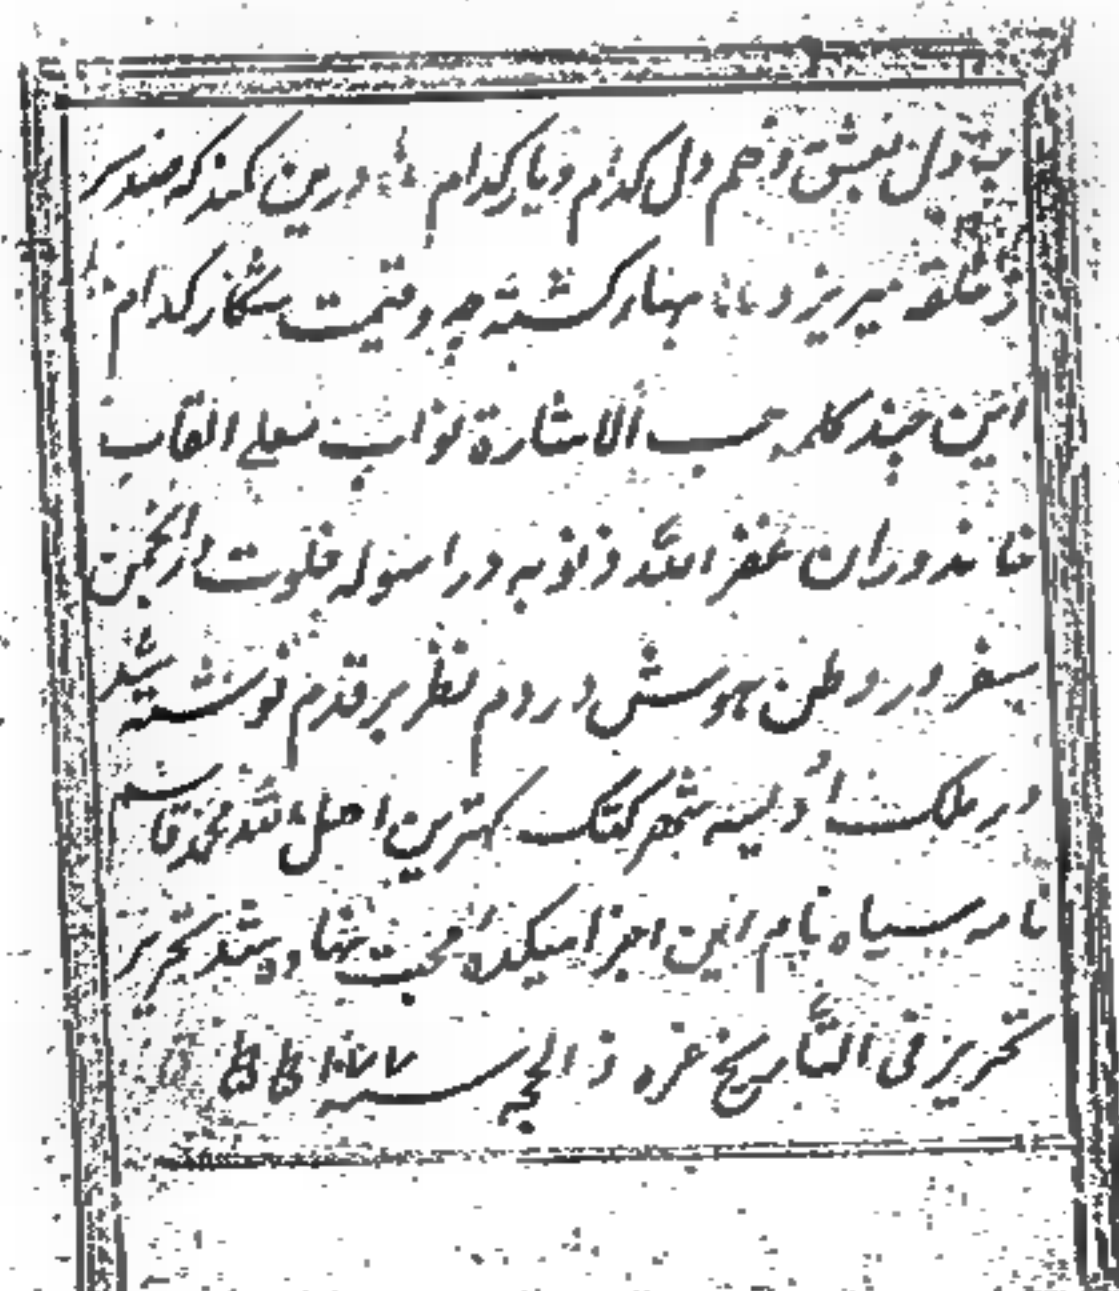 دل بعشق دهم دل کدام و یار کدام درین کمند که صد سر
ز حلقه میریزد بهار کشته چه وقیمت شکار کدام
این چند کلمه حسب الاشارة نواب معلی القاب
خاندوران غفر الله ذنوبه در اسوله خلوت در انجمن
سفر در وطن هوش در دم نظر بر قدم نوشته شد
در ملک اودیسه شهر کتک کهترین اهل الله محمد قاسم
نامه سیاه نام این اجزا میکده محبت تنها و بیشتد تحریر
تحریر فی التاریخ غره ذ الحجه سنه